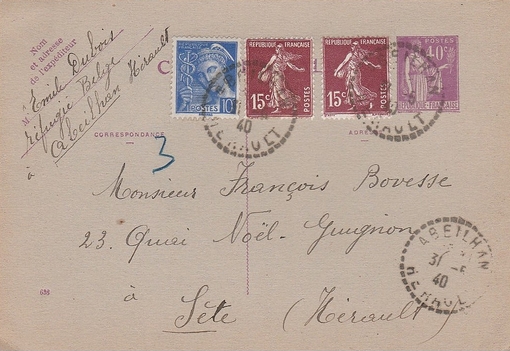 Nom
et adresse
de l'expéditeur
M
Emile Dubois
réfugié Belge
Abeilhan Hérault
à
C
REPUBLIQUE FRANÇAISE
POSTES
10
REPUBLIQUE FRANÇAISE
15c
POSTES
REPUBLIQUE FRANÇAISE
15c
POSTES
POSTES
40c
40
HERAULT
CORRESPONDANCE
ADRE
3
Monsieur François Bovesse
23. Quai Noël-Guignon
à
Sète (Hérault)
ABEILHAN
31 -5
40
HERAULT
636